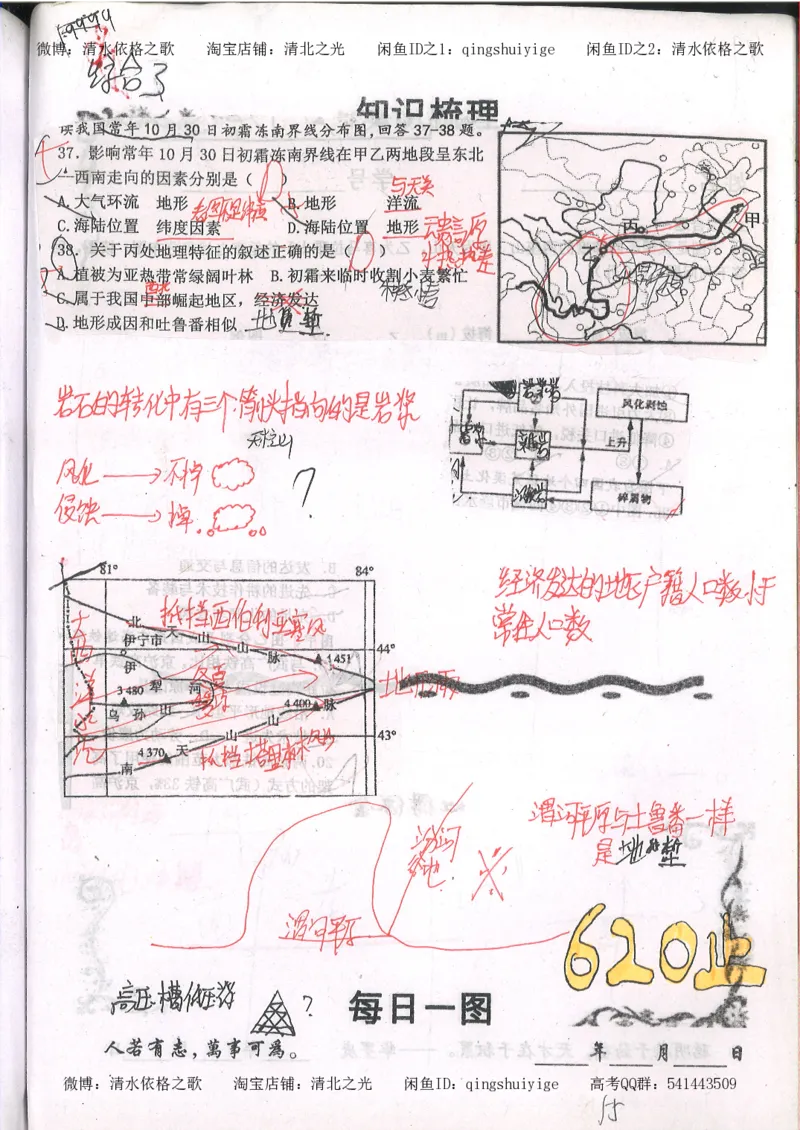 1.9994
微博：清水依格之歌 淘宝店铺：清北之光 闲鱼ID之1：qingshuiyige 闲鱼ID之2：清水依格之歌
综合了
知识梳理
读我国常年10月30日初霜冻南界线分布图,回答37-38题。
37．影响常年10月30日初霜冻南界线在甲乙两地段呈东北
—西南走向的因素分别是（ ）
与无关
A.大气环流 地形 B.地形 洋流
C.海陆位置 纬度因素 D.海陆位置 地形
云贵高原
38．关于丙处地理特征的叙述正确的是（ ）
A.植被为亚热带常绿阔叶林 B.初霜来临时收割小麦繁忙
C.属于我国中部崛起地区，经济发达
西北
D.地形成因和吐鲁番相似 地堑
甲
乙
丙
岩石的转化中有三个箭头指向的是岩浆
风化 不掉
侵蚀 掉
?
风化剥蚀
上升
沉积岩
碎屑物
经济发达的地区户籍人口数小于
常住人口数
81° 84°
抵挡西伯利亚寒风
北 天 山 山 脉
伊宁市
44°
1 451
伊 犁 河
3 480
大西洋水汽
地形雨
乌 孙 山 山 山 脉
4 400
43°
4 370
南 天
抵挡塔里木风沙
渭河平原与吐鲁番一样
是地堑
汾河谷地
渭河平原
620止
高压槽低压脊 ?
每日一图
人若有志，萬事可為。
年 月 日
微博：清水依格之歌 淘宝店铺：清北之光 闲鱼ID：qingshuiyige 高考QQ群：541443509
15